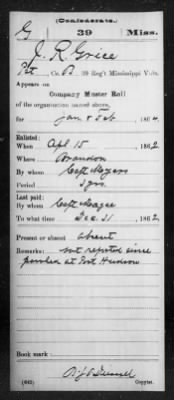 (Confederate.)
G 39 Miss.
J. R. Grice
Pvt, Co. B, 39 Reg't Mississippi Vols.
Appears on
Company Muster Roll
of the organization named above,
for Jan & Feb, 1864.
Enlisted:
When Apl 15, 1862
Where Brandon
By whom Capt Myers
Period 3 yrs.
Last paid:
By whom Capt Magee
To what time Dec. 31, 1862
Present or absent absent
Remarks: not reported since
paroled at Port Hudson
Book mark:
(642) Copyist.